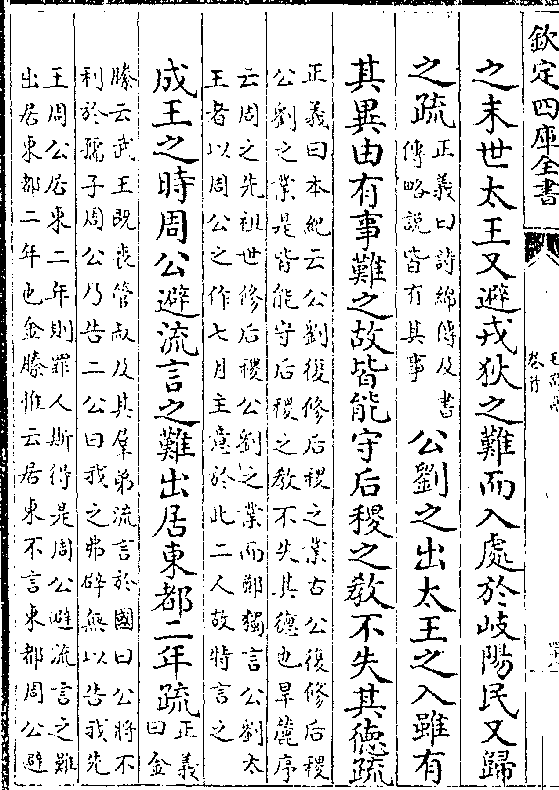 欽定四庫全書
之末世太王又避戎狄之難而入處於岐陽民又歸
之疏正義曰詩緜傳及書傳略說皆有其事公劉之出太王之入雖有
其異由有事難之故皆能守后稷之敎不失其德疏
正義曰本紀云公劉復修后稷之業古公復修后稷
公劉之業是皆能守后稷之敎不失其德也旱麓序
云周之先祖世修后稷公劉之業而鄭獨言公劉太
王者以周公之作七月主意於此二人故特言之
成王之時周公避流言之難出居東都二年疏正義曰金
縢云武王既喪管叔及其羣弟流言於國曰公將不
利於孺子周公乃告二公曰我之弗辟無以告我先
王周公居東二年則罪人斯得是周公避流言之難
出居東都二年也金縢惟云居東不言東都周公避